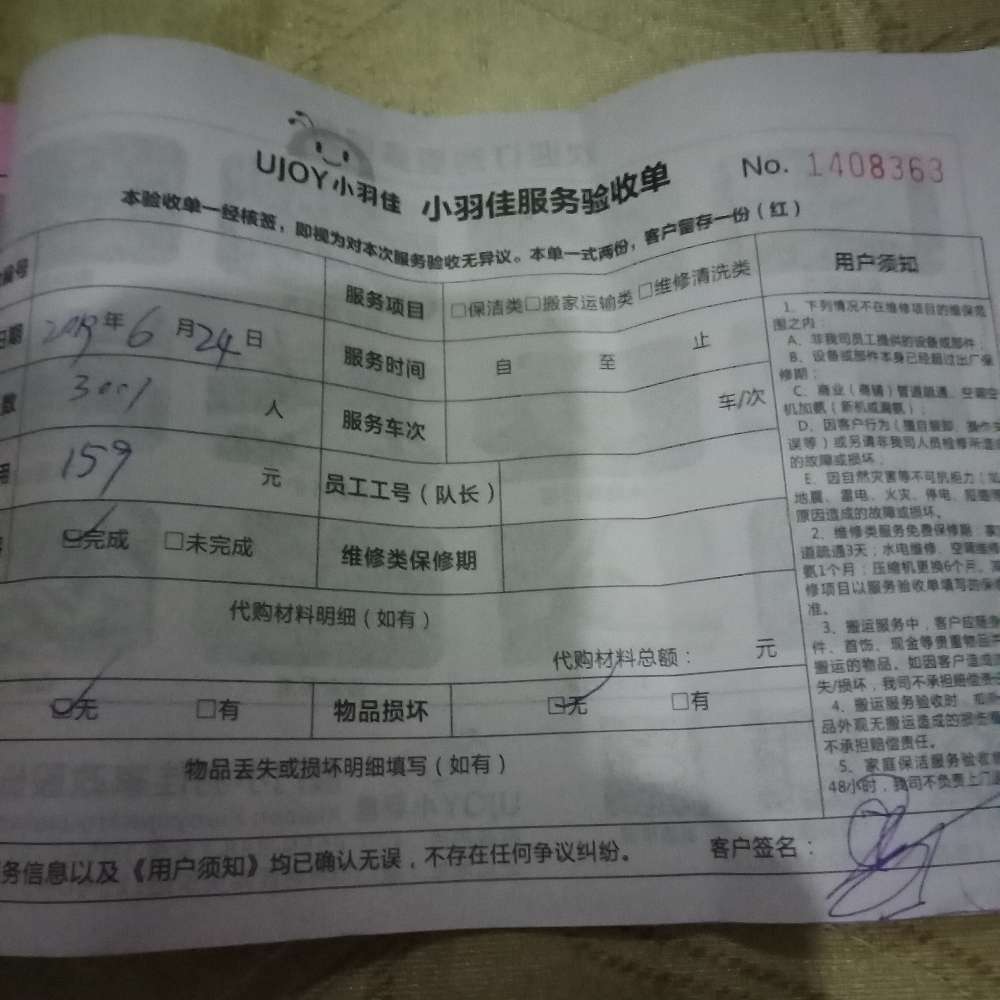 UJOY小羽佳 小羽佳服务验收单 No. 1408363
本验收单一经核签，即视为对本次服务验收无异议。本单一式两份，客户留存一份（红）
编号 服务项目 □保洁类□搬家运输类□维修清洗类
日期 2019年6月24日 服务时间 自 至 止
数 人 服务车次 车/次
用 159 元 员工工号（队长）
☑完成 □未完成 维修类保修期
代购材料明细（如有）
代购材料总额： 元
☑无 □有 物品损坏 ☑无 □有
物品丢失或损坏明细填写（如有）
务信息以及《用户须知》均已确认无误，不存在任何争议纠纷。 客户签名：
用户须知
1、下列情况不在维修项目的维保范
围之内：
A、非我司员工提供的设备或部件；
B、设备或部件本身已经超过出厂保
修期；
C、商业（商铺）管道疏通、空调空
机加氨（新机或漏氨）；
D、因客户行为（擅自装卸、操作失
误等）或另请非我司人员检修所造
的故障或损坏；
E、因自然灾害等不可抗拒力：如
地震、雷电、火灾、停电、
原因造成的故障或损坏。
2、维修类服务免费保修期：家
道疏通3天；水电维修、空调维修
氨1个月；压缩机更换6个月。
修项目以服务验收单填写的保
准。
3、搬运服务中，客户应随身
件、首饰、现金等贵重物品
搬运的物品。如因客户造成
失/损坏，我司不承担赔偿责任
4、搬运服务验收时，
品外观无搬运造成的损
不承担赔偿责任。
5、家庭保洁服务验收
48小时，我司不负责上门